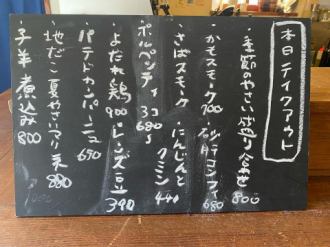 本日テイクアウト
・季節のやさい盛り合わせ 800
・かもスモーク 700 ・砂肝コンフィ 680
・さばスモーク ・にんじんとクミン 440
・ポルペッティ 3コ 680
・よだれ鶏 900 ・レンズ豆 390
・パテドカンパーニュ 690
・地だこ夏やさいマリネ 880
・子羊煮込み 800